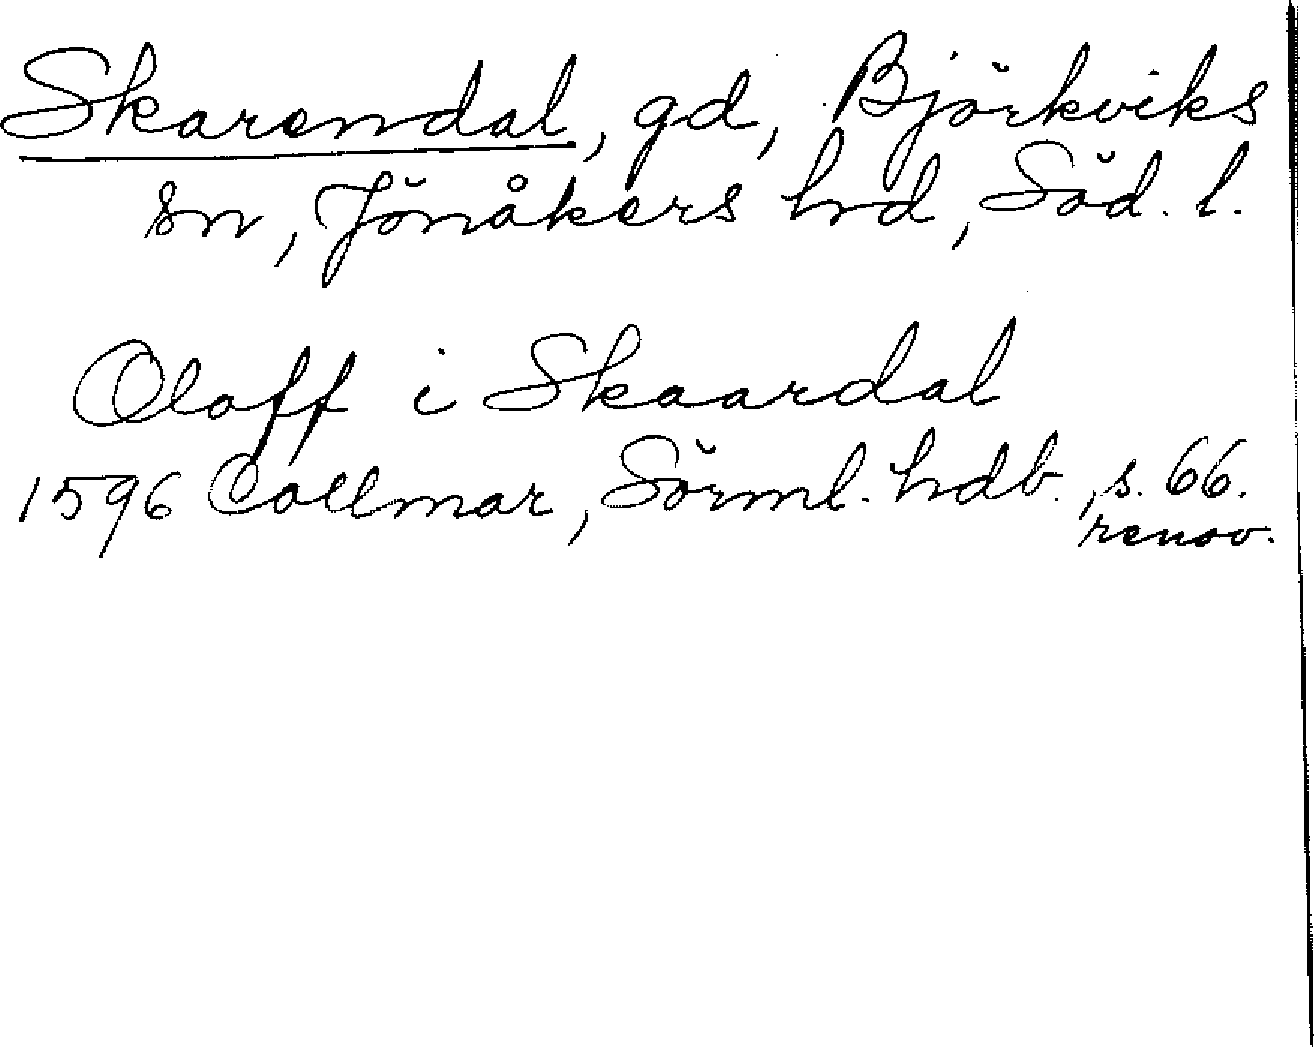 Skarendal, gd, Björkviks
sn, Jönåkers hd, Söd. l.
Oloff i Skaardal
1596 Collmar, Sörml. hdb., s. 66.
renov.